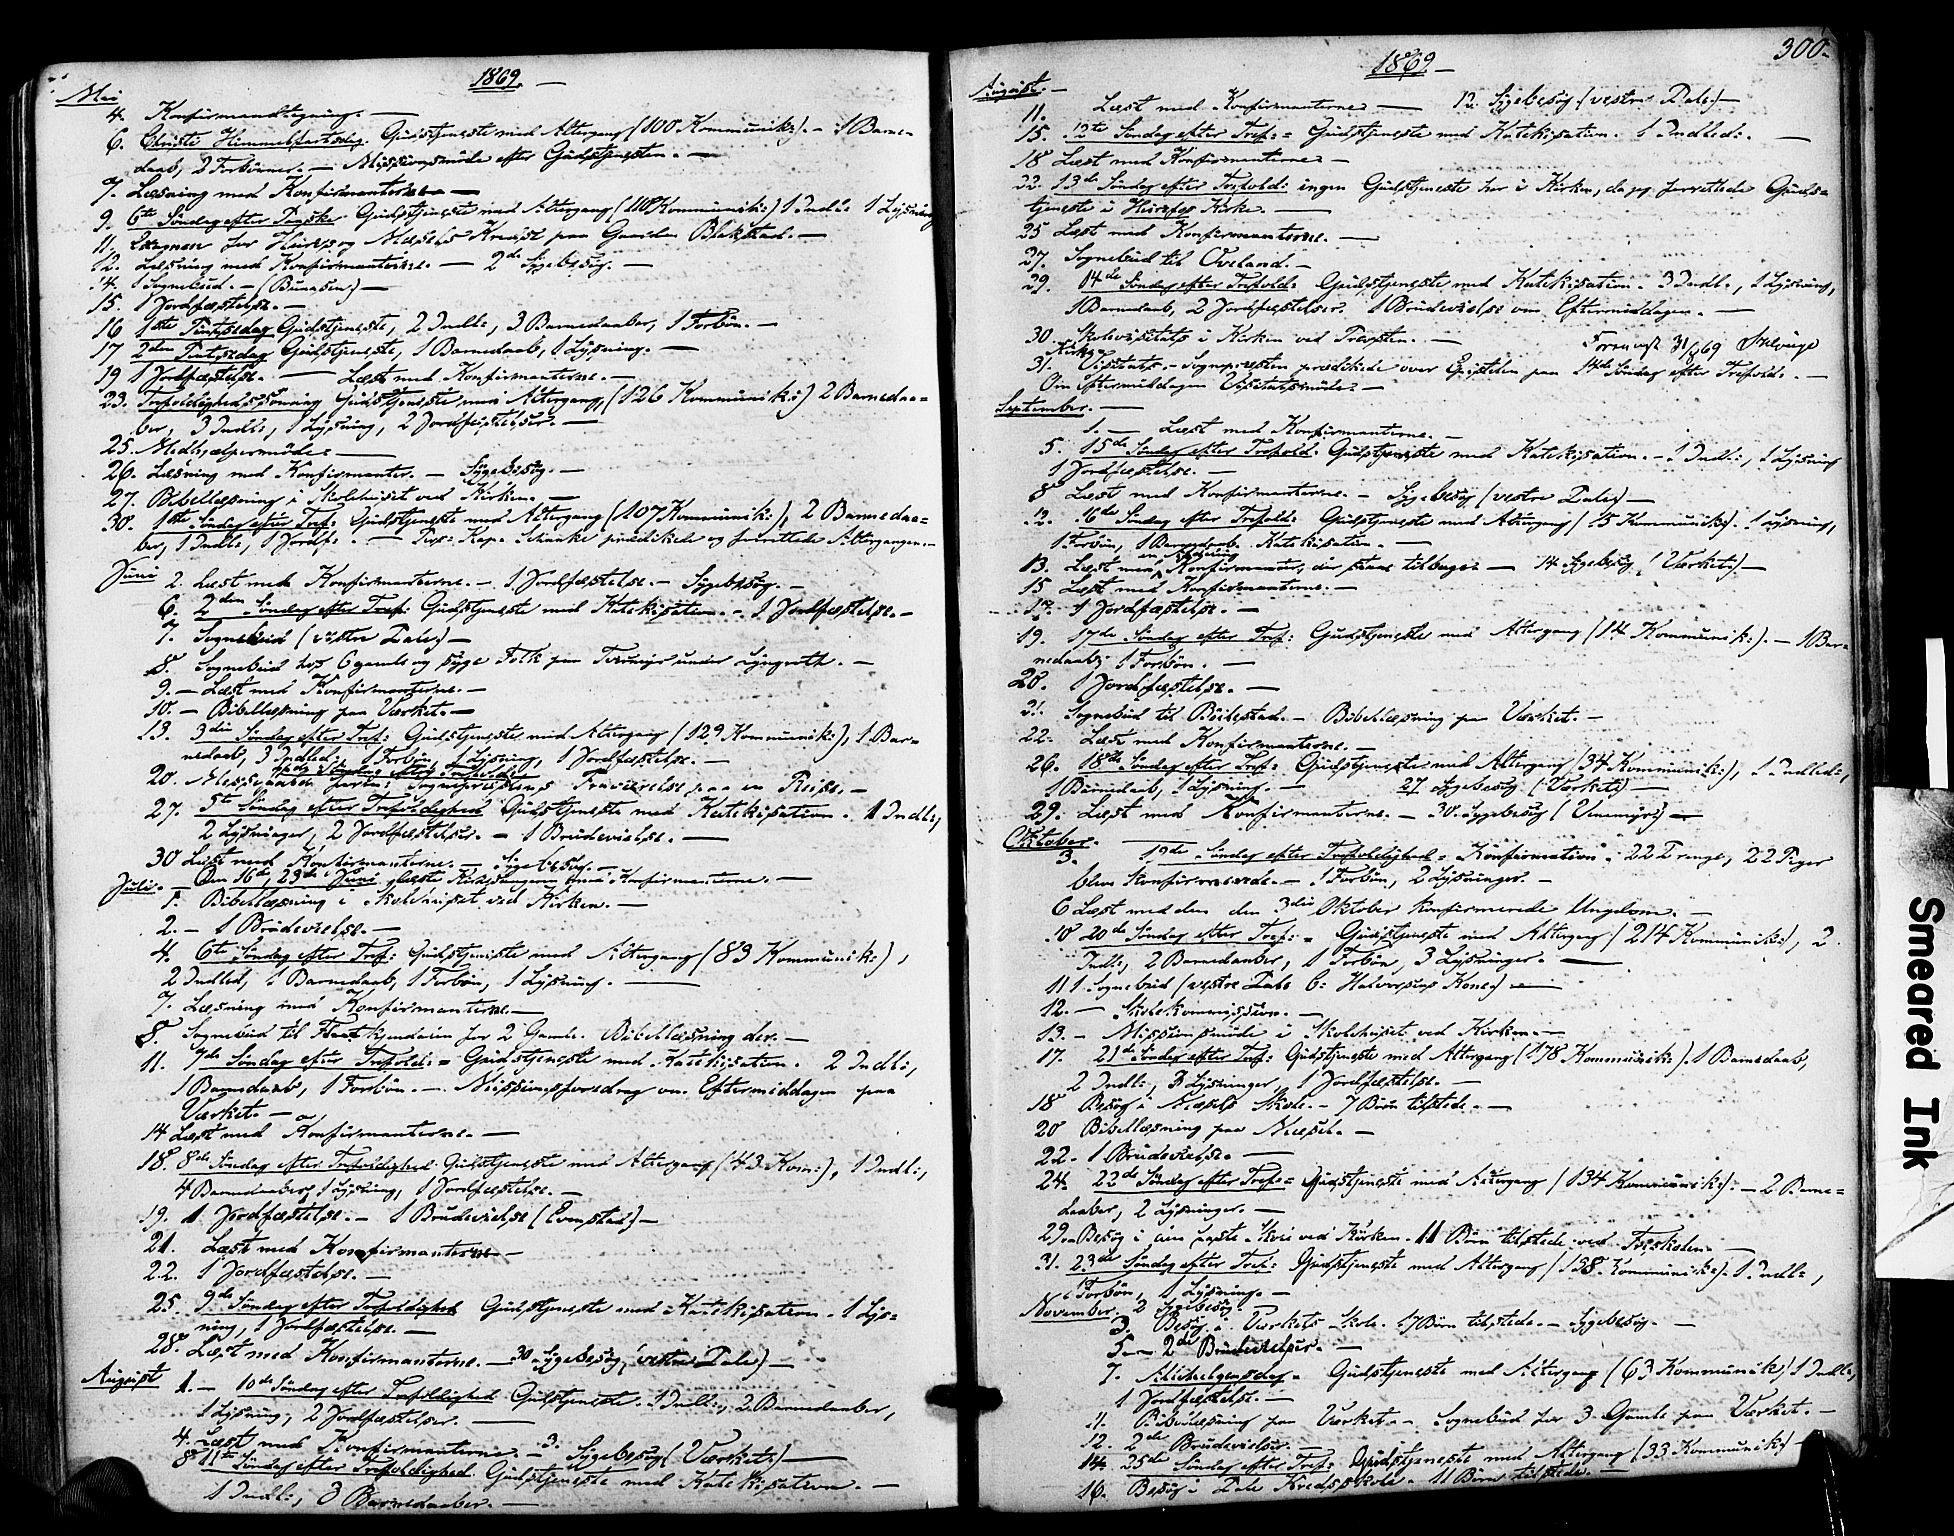 1869. -
Mai
4. Konfirmandtegning. -
6. Christi Himmelfartsdag. Gudstjeneste med Altergang (100 Kommunik:). - 1 Barne-
daab, 2 Forbønner. - Missionsmøde efter Gudstjenesten. -
7. Læsning med Konfirmanterne. -
9. 6te Søndag efter Paaske Gudstjeneste med Altergang (118 Kommunik:) 1 Indl: 1 Lysning
11. for og Kreds paa Gaarden Blakstad. -
12. Læsning med Konfirmanterne. - 2de Sygebesøg. -
14. 1 Sognebud. - (Buaasen) -
15. 1 Jordfæstelse. -
16 1ste Pintsedag Gudstjeneste, 2 Indl:, 3 Barnedaaber, 1 Forbøn. -
17 2den Pintsedag Gudstjeneste, 1 Barnedaab, 1 Lysning. -
19 1 Jordfæstelse. - Læst med Konfirmanterne. -
23. Trefoldighedssøndag Gudstjeneste med Altergang, (126 Kommunik:) 2 Barnedaa-
ber, 3 Indl:, 1 Lysning, 2 Jordfæstelser. -
25. Medhjælpermøde -
26. Læsning med Konfirmanter. - Sygebesøg. -
27. Bibellæsning i Skolehuset ved Kirken. -
30. 1ste Søndag efter Tref: Gudstjeneste med Altergang (107 Kommunik:), 2 Barnedaa-
ber, 1 Indl:, 1 Jordf: - Kap: Schanke prædikede og forrettede Altergangen. -
Juni
2. Læst med Konfirmanterne. - 1 Jordfæstelse. - Sygebesøg. -
6. 2den Søndag efter Tref: Gudstjeneste med Katekisation. - 1 Jordfæstelse. -
7. Sognebud (vestre Dale) -
8. Sognebud hos 6 gamle og syge Folk paa under Lyngroth. -
9. - Læst med Konfirmanterne. -
10. - Bibellæsning paa Værket. -
13. 3die Søndag efter Tref: Gudstjeneste med Altergang (129 Kommunik:), 1 Bar-
nedaab, 3 Indled:, 1 Forbøn, 1 Lysning, 1 Jordfæstelse. -
4de Søndag efter Trefoldig:
20. Messefald Sognepræstens Fraværelse paa en Reise. -
27. 5te Søndag efter Trefoldighed Gudstjeneste med Katekisation. 1 Indl:,
2 Lysninger, 2 Jordfæstelser. - 1 Brudevielse. -
30 Læst med Konfirmanterne. - Sygebesøg. -
Den 16de, 23de Juni læste med Konfirmanterne. -
Juli. -
1. Bibellæsning i Skolehuset ved Kirken. -
2. - 1 Brudevielse. -
4. 6te Søndag efter Tref: Gudstjeneste med Altergang (83 Kommunik:),
2 Indled, 1 Barnedaab, 1 Forbøn, 1 Lysning. -
7. Læsning med Konfirmanterne. -
8. Sognebud til for 2 Gamle. Bibellæsning der. -
11. 7de Søndag efter Trefold: = Gudstjeneste med Katekisation. 2 Indl:,
1 Barnedaab, 1 Forbøn. - Missionsforedrag om Eftermiddagen paa
Værket. -
14 Læst med Konfirmanterne. -
18. 8de Søndag efter Trefoldighed. Gudstjeneste med Altergang (43 Kom:), 1 Indl:,
4 Barnedaaber, 1 Lysning, 1 Jordfæstelse. -
19. 1 Jordfæstelse. - 1 Brudevielse (Evenstad) -
21. Læst med Konfirmanterne -
22. 1 Jordfæstelse. -
25. 9de Søndag efter Trefoldighed Gudstjeneste med Katekisation. 1 Lys-
ning, 1 Jordfæstelse. -
28. Læst med Konfirmanterne. - 30 Sygebesøg (vestre Dale) -
August
1. - 10de Søndag efter Trefoldighed Gudstjeneste. 1 Indl:, 2 Barnedaaber,
1 Lysning, 2 Jordfæstelser. -
4. Læst med Konfirmanterne - 3. Sygebesøg (Værket) -
8 11te Søndag efter Trefoldighed. Gudstjeneste med Katekisation. -
1 Indl:, 3 Barnedaaber. -
1869 -
300.
August. -
11. Læst med Konfirmanterne - 12. Sygebesøg (vestre Dale) -
15. 12te Søndag efter Tref: = Gudstjeneste med Katekisation. 1 Indled:. -
18 Læst med Konfirmanterne -
22. 13de Søndag efter Trefold: ingen Gudstjeneste her i Kirken, da jeg forrettede Guds-
tjeneste i Kirke. -
25 Læst med Konfirmanterne. -
27. Sognebud til Øveland. -
29. 14de Søndag efter Trefold: Gudstjeneste med Katekisation. 3 Indl:, 1 Lysning,
1 Barnedaab, 2 Jordfæstelser. 1 Brudevielse om Eftermiddagen. -
30. Skolevisitats i Kirken ved Provsten. -
Forevist 31/8 69
31. Kirke Visitats. - Sognepræsten prædikede over Epistelen paa 14de Søndag efter Trefold: -
Om Eftermiddagen Visitatsmøde. -
September. -
1. - Læst med Konfirmanterne. -
5. 15de Søndag efter Trefold: Gudstjeneste med Katekisation. - 1 Indl:, 1 Lysning
1 Jordfæstelse. -
8 Læst med Konfirmanterne. - Sygebesøg (vestre Dale) -
12. 16de Søndag efter Trefold: Gudstjeneste med Altergang (15 Kommunik:). 1 Lysning,
1 Forbøn, 1 Barnedaab. Katekisation. -
13. Læst med en Konfirmanter, der tilbage - 14 Sygebesøg (Værket) -
15 Læst med Konfirmanterne. -
17. 1 Jordfæstelse. -
19. 17de Søndag efter Tref: Gudstjeneste med Altergang (14 Kommunik:). - 1 Bar-
nedaab, 1 Forbøn. -
20. 1 Jordfæstelse. -
21. Sognebud til Bøilestad. - Bibellæsning paa Værket. -
22. Læst med Konfirmanterne. -
26. 18de Søndag efter Tref: Gudstjeneste med Altergang (34 Kommunik:), 1 Indled:,
1 Barnedaab, 1 Lysning. - 27 Sygebesøg (Værket) -
29. Læst med Konfirmanterne. - 30. Sygebesøg (Venemyr) -
Oktober. -
3. 19de Søndag efter Trefoldighed = "Konfirmation". 22 Drenge, 22 Piger
bleve konfirmerede. - 1 Forbøn, 2 Lysninger. -
6 Læst med den den 3die Oktober konfirmerede Ungdom. -
10 20de Søndag efter Tref: = Gudstjeneste med Altergang (214 Kommunik:), 2
Indl:, 2 Barnedaaber, 1 Forbøn, 3 Lysninger. -
11 1 Sognebud (vestre Dale Halvorsens Kone) -
12. - Skolekommission. -
13. - Missionsmøde i Skolehuset ved Kirken. -
17. 21de Søndag efter Tref: Gudstjeneste med Altergang (178 Kommunik:). 1 Barnedaab,
2 Indl:, 3 Lysninger, 1 Jordfæstelse. -
18 Besøg i Næsets Skole. - 7 Børn tilstede. -
20 Bibellæsning paa Næset. -
22. 1 Brudevielse -
24. 22de Søndag efter Tref: = Gudstjeneste med Altergang (134 Kommunik:). - 2 Barne-
daaber, 2 Lysninger. -
29. Besøg i den faste Skole ved Kirken. 11 Børn tilstede ved -
31. 23de Søndag efter Tref: Gudstjeneste med Altergang (138 Kommunik:). 1 Indl:,
1 Forbøn, 1 Lysning. -
November. 2 Sygebesøg. -
3. Besøg i Værkets Skole. 17 Børn tilstede. - Sygebesøg. -
5. - 2de Brudevielser. -
7. Allehelgensdag. Gudstjeneste med Altergang (63 Kommunik:) 1 Indl:,
1 Jordfæstelse. -
11. Bibellæsning paa Værket. - Sognebud for 3 Gamle paa Værket. -
12. 2de Brudevielser. -
14. 25de Søndag efter Tref: Gudstjeneste med Altergang (33 Kommunik:) -
16. Besøg i Dale Kredsskole. 11 Børn tilstede. -
Smeared Ink